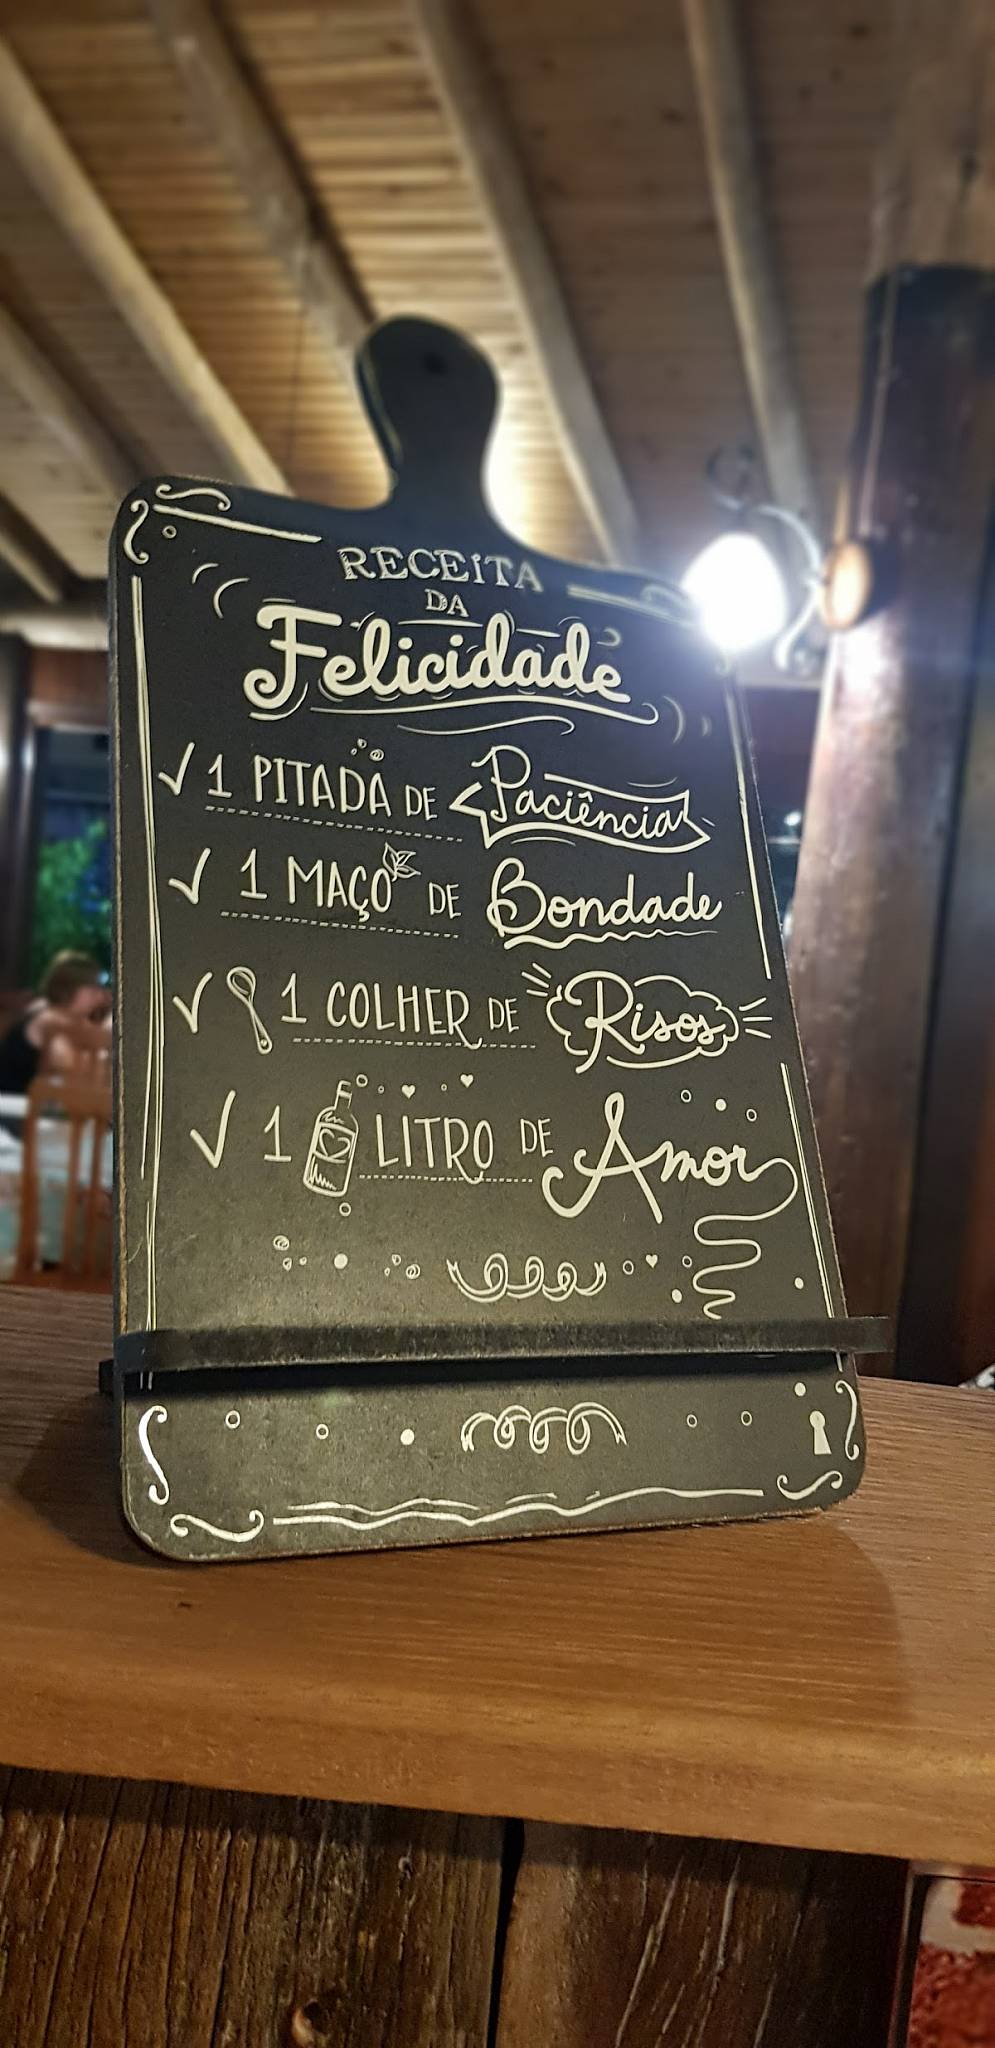 RECEiTA
DA
Felicidade
✓ 1 PITADA DE Paciência
✓ 1 MAÇO DE Bondade
✓ 1 COLHER DE Risos
✓ 1 LITRO DE Amor